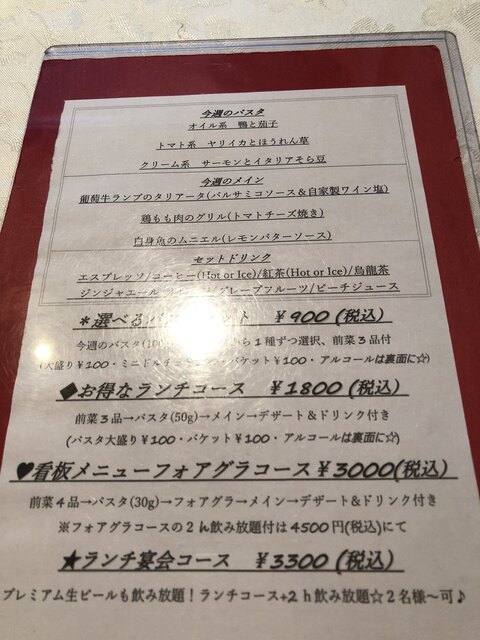 今週のパスタ
オイル系　鴨と茄子
トマト系　ヤリイカとほうれん草
クリーム系　サーモンとイタリアそら豆
今週のメイン
葡萄牛ランプのタリアータ(バルサミコソース＆自家製ワイン塩)
鶏もも肉のグリル(トマトチーズ焼き)
白身魚のムニエル(レモンバターソース)
セットドリンク
エスプレッソ/コーヒー(Hot or Ice)/紅茶(Hot or Ice)/烏龍茶
ジンジャエール グレープフルーツ/ピーチジュース
＊選べるパ ット　￥900 (税込)
今週のパスタ(100 から１種ずつ選択、前菜３品付
(大盛り￥100・ミニドルチ バケット￥100・アルコールは裏面に☆)
◆お得なランチコース　￥1800 (税込)
前菜３品→パスタ(50g)→メイン→デザート＆ドリンク付き
(パスタ大盛り￥100・バケット￥100・アルコールは裏面に☆)
♥看板メニューフォアグラコース￥3000(税込)
前菜４品→パスタ(30g)→フォアグラ→メイン→デザート&ドリンク付き
※フォアグラコースの２h飲み放題付は4500円(税込)にて
★ランチ宴会コース　￥3300 (税込)
プレミアム生ビールも飲み放題！ランチコース+２ｈ飲み放題☆２名様～可♪